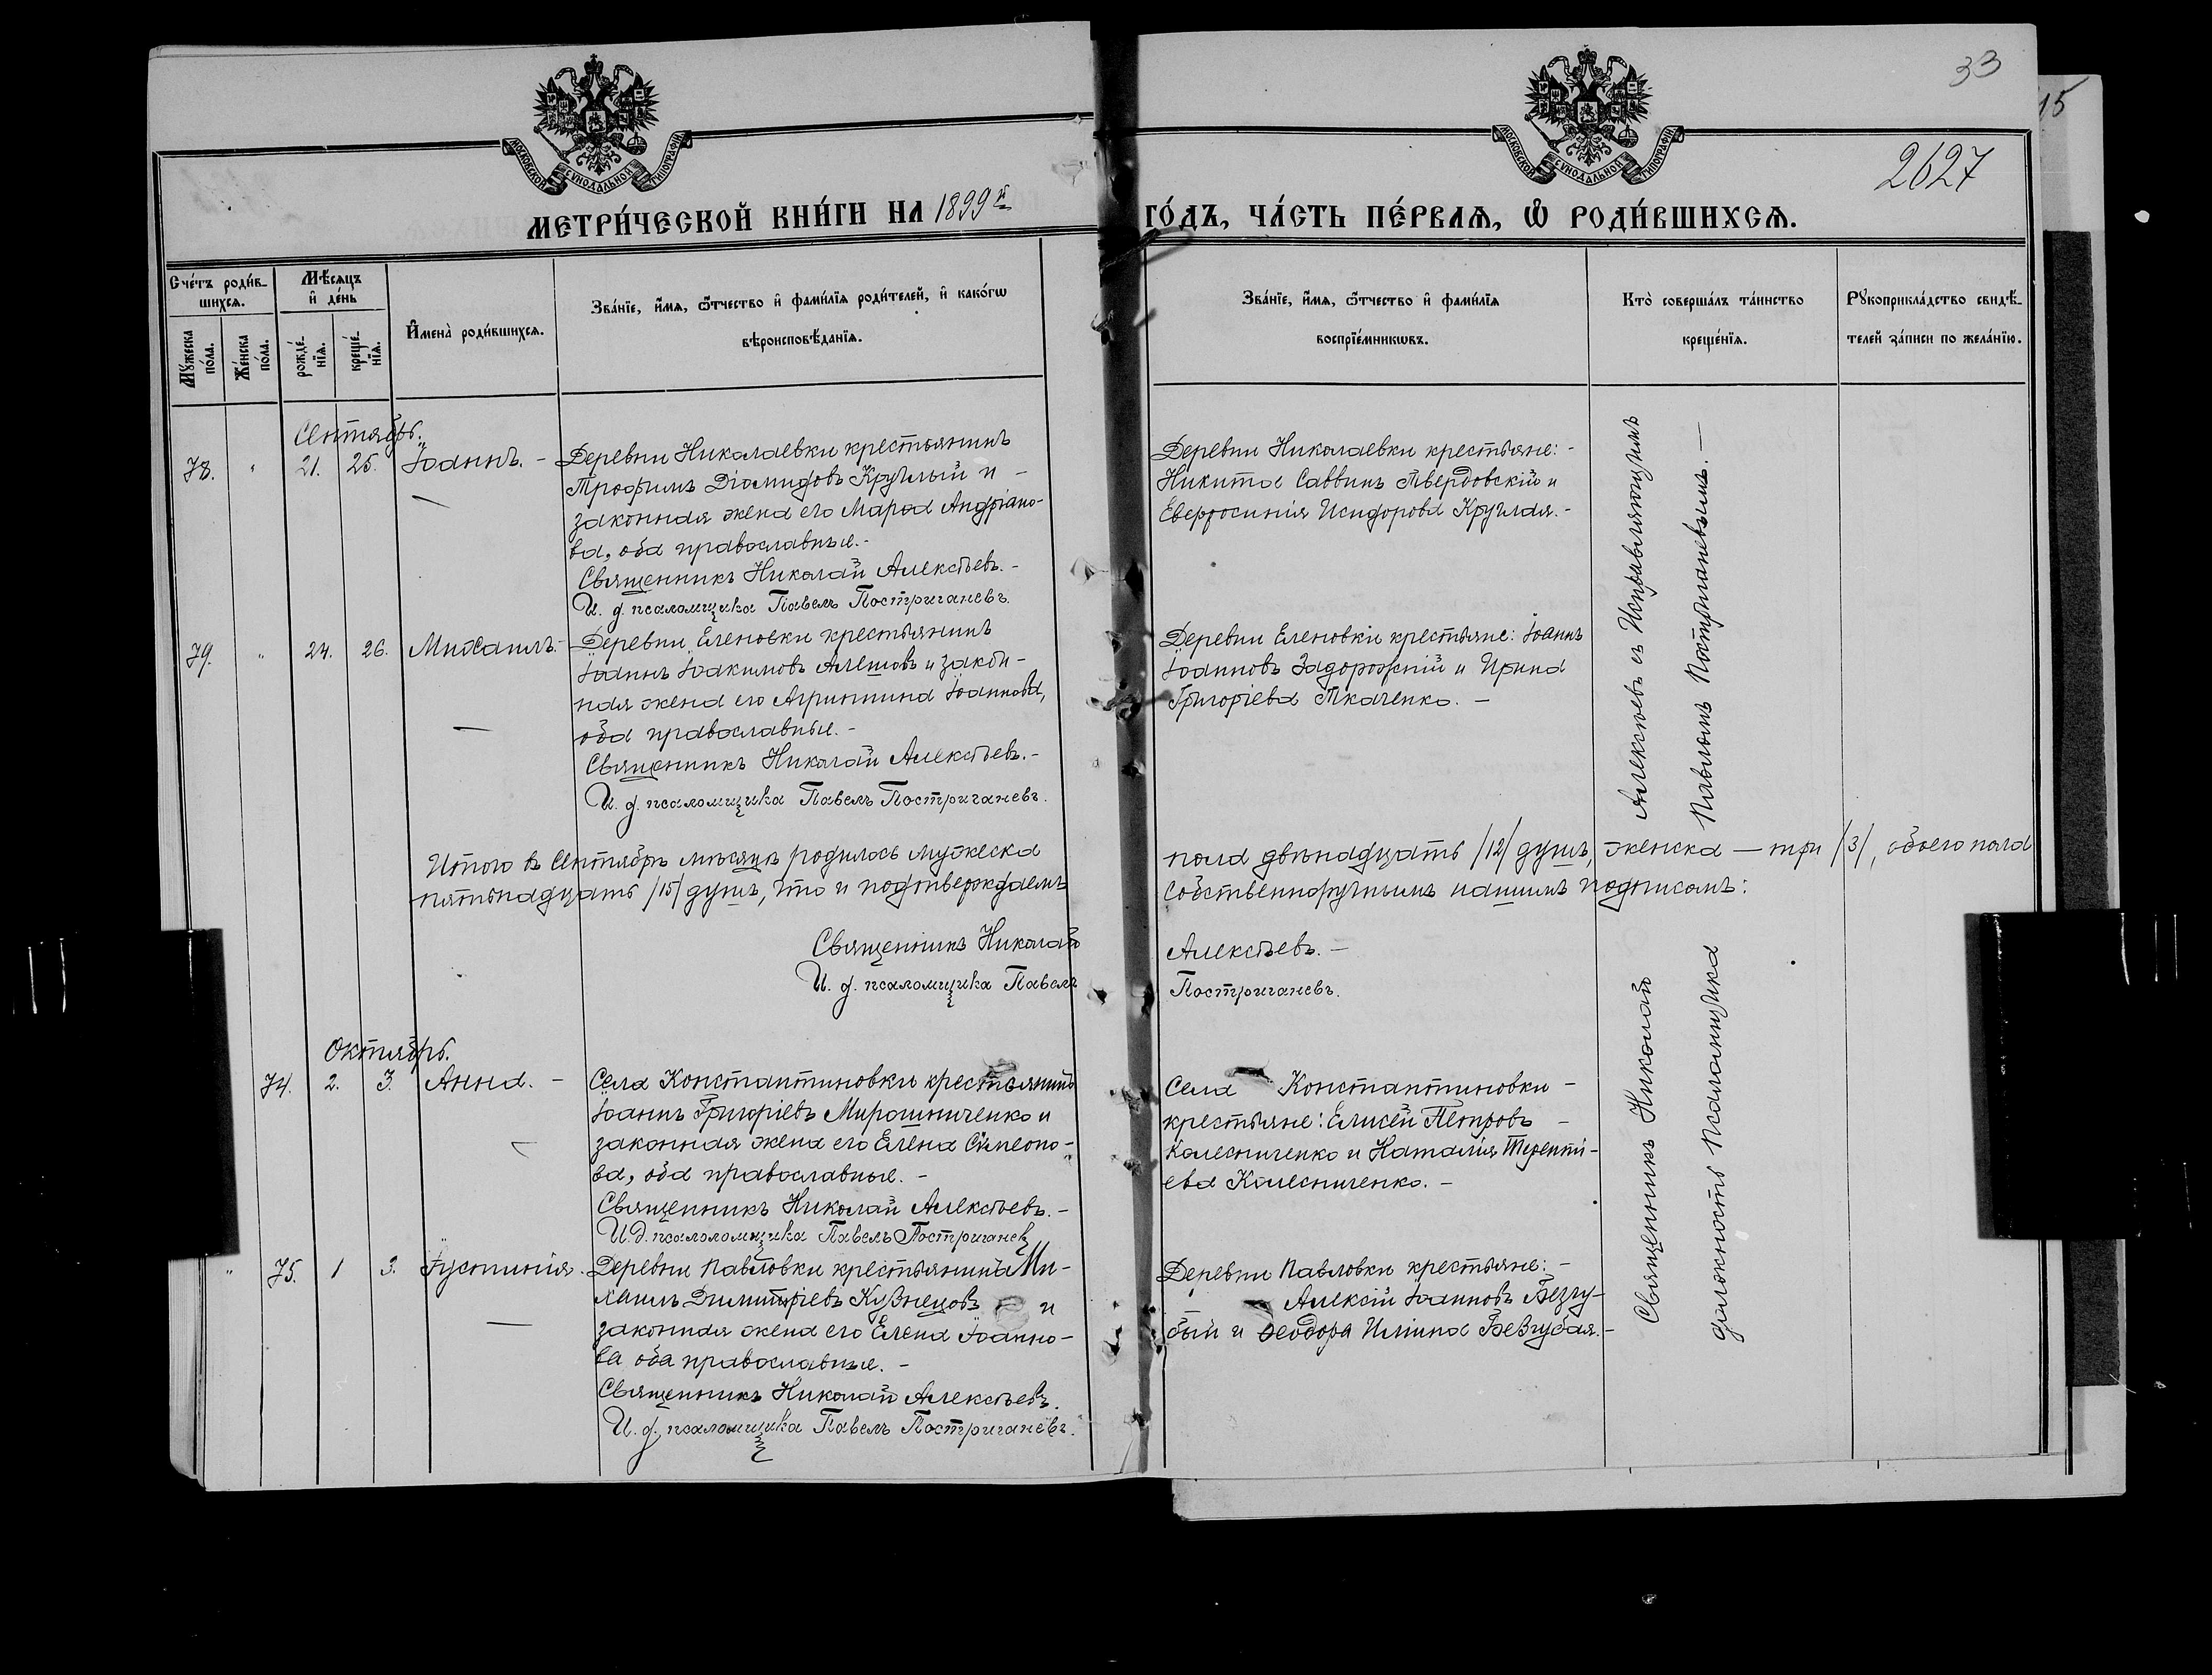 33
15
2627
МОСКОВСКОЙ СУНОДАЛЬНОЙ ТИПОГРАФІИ
МОСКОВСКОЙ СУНОДАЛЬНОЙ ТИПОГРАФІИ
МЕТРИ́ЧЕСКОЙ КНИ́ГИ НА 1899й ГО́ДЪ, ЧА́СТЬ ПЕ́РВАѦ, Ѡ РОДИ́ВШИХСѦ.
Счетъ роди́в-
шихсѧ.
Мꙋжеска по́ла.
Же́нска по́ла.
Мѣсѧцъ
и҆ де́нь
рожде́-
нїѧ.
креще́-
нїѧ.
И҆мена̀ роди́вшихсѧ.
Зва́нїе, и҆́мѧ, ѻ҆́тчество и҆ фами́лїѧ роди́телей, и҆ како́гѡ
вѣроисповѣ́данїѧ.
Зва́нїе, и҆́мѧ, ѻ҆́тчество и҆ фами́лїѧ
воспрїе́мникѡвъ.
Кто̀ соверша́лъ та́инство
креще́нїѧ.
Рꙋкоприкла́дство свидѣ́-
телей за́писи по жела́нїю.
Сентябрь.
78. " 21. 25. Іоаннъ. - Деревни Николаевки крестьянинъ
Трофимъ Діомидовъ Круглый и -
законная жена его Марѳа Андріано-
ва, оба православные. -
Священникъ Николай Алексѣевъ. -
И. д. псаломщика Павелъ Постриганевъ.
Деревни Николаевки крестьяне: -
Никита Саввинъ Твердовскій и
Евфросинія Исидорова Круглая. -
79. " 24. 26. Михаилъ. - Деревни Еленовки крестьянинъ
Іоаннъ Іоакимовъ Алешовъ и закон-
ная жена его Агрипина Іоаннова,
оба православные. -
Священникъ Николай Алексѣевъ. -
И. д. псаломщика Павелъ Постриганевъ.
Деревни Еленовки крестьяне: Іоаннъ
Іоанновъ Задорожній и Ирина
Григоріева Ткаченко. -
Итого въ Сентябрѣ мѣсяцѣ родилось мужеска пола двѣнадцать /12/ душъ, женска — три /3/, обоего пола
пятьнадцать /15/ душъ, что и подтверждаемъ собственноручнымъ нашимъ подписомъ:
Священникъ Николай Алексѣевъ. -
И. д. псаломщика Павелъ Постриганевъ.
Октябрь.
74. 2. 3. Анна. - Села Константиновки крестьянинъ
Іоаннъ Григоріевъ Мирошниченко и
законная жена его Елена Симеоно-
ва, оба православные. -
Священникъ Николай Алексѣевъ. -
И.д. псалоломщика Павелъ Постриганев
Села Константиновки -
крестьяне: Елисей Петровъ -
Колесниченко и Наталія Терентi-
ева Колесниченко. -
" 75. 1 3. Іустинія. Деревни Павловки крестьянинъ Ми-
хаилъ Димитріевъ Кузнецовъ и
законная жена его Елена Іоанно-
ва оба православные. -
Священникъ Николай Алексѣевъ.
И. д. псаломщика Павелъ Постриганевъ.
Деревни Павловки крестьяне: -
Алексій Іоанновъ Безгу-
бый и Ѳеодора Иліина Безгубая. -
Священникъ Николай Алексѣевъ съ Исправляющимъ
должность псаломщика Павломъ Постриганевымъ. -